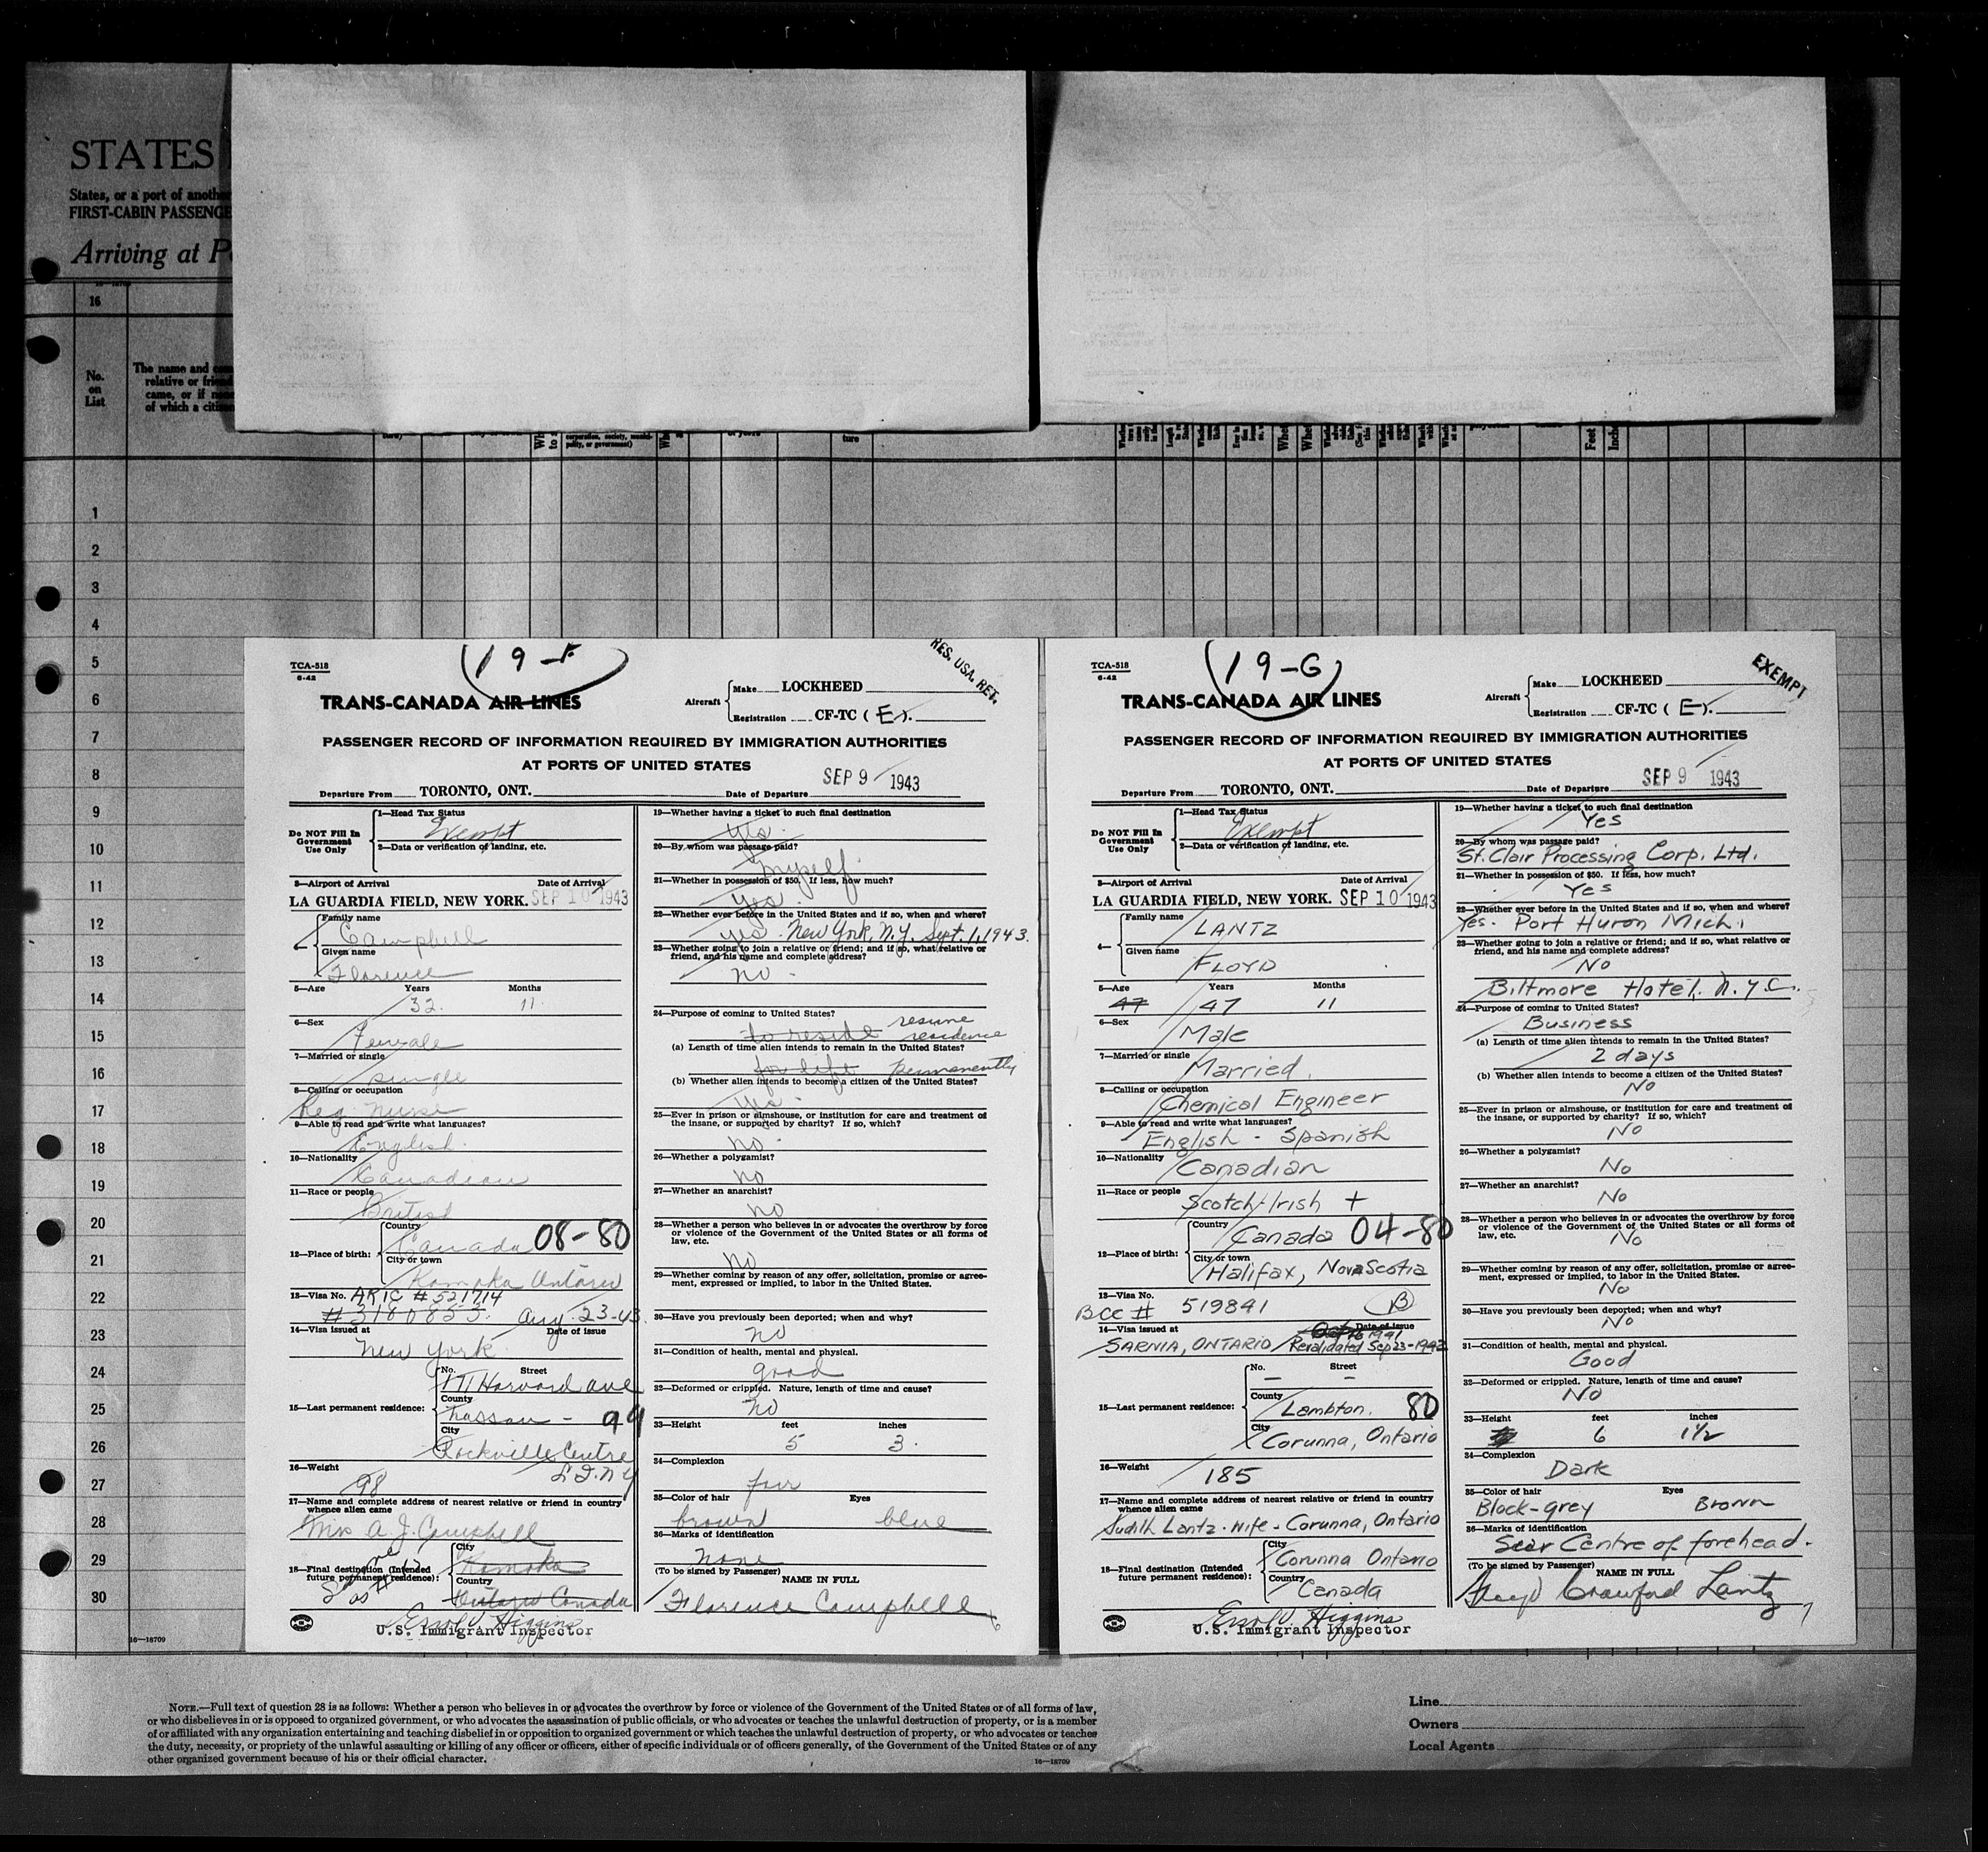 STATES
States, or a port of another
FIRST-CABIN PASSENGE
Arriving at P
16
No.
on
List
The name and
relative or friend
came, or if none
of which a citizen
ture)
corporation, society, munici-
pality, or government)
ture
Feet
Inches
1
2
3
4
5
6
7
8
9
10
11
12
13
14
15
16
17
18
19
20
21
22
23
24
25
26
27
28
29
30
16—18709
TCA-518
6-42
19-F
RES. USA. RET.
TRANS-CANADA AIR LINES
Aircraft
Make LOCKHEED
Registration CF-TC (E).
PASSENGER RECORD OF INFORMATION REQUIRED BY IMMIGRATION AUTHORITIES
AT PORTS OF UNITED STATES
SEP 9 1943
Departure From TORONTO, ONT. Date of Departure
Do NOT Fill In
Government
Use Only
1—Head Tax Status
Exempt
2—Data or verification of landing, etc.
3—Airport of Arrival Date of Arrival
LA GUARDIA FIELD, NEW YORK. SEP 10 1943
4—
Family name
Campbell
Given name
Florence
5—Age Years Months
32. 11.
6—Sex
Female
7—Married or single
single
8—Calling or occupation
Reg. Nurse
9—Able to read and write what languages?
English.
10—Nationality
Canadian
11—Race or people
British
12—Place of birth:
Country
Canada 08-80
City or town
Komoka Ontario
13—Visa No. ARIC # 521714
# 3180853. Aug. 23-43.
14—Visa issued at Date of issue
New York
15—Last permanent residence:
No. Street
177 Harvard ave
County
Nassau - 99
City
Rockville Centre
L.I. N.Y
16—Weight
98
17—Name and complete address of nearest relative or friend in country
whence alien came
Mrs A. J. Campbell
18—Final destination (Intended
future permanent residence):
City
Komoka
Country
Ontario Canada
Same
as #
Errol V. Higgins
U.S. Immigrant Inspector
19—Whether having a ticket to such final destination
yes.
20—By whom was passage paid?
myself.
21—Whether in possession of $50. If less, how much?
yes.
22—Whether ever before in the United States and if so, when and where?
yes. New York, N.Y. Sept. 1, 1943.
23—Whether going to join a relative or friend; and if so, what relative or
friend, and his name and complete address?
no.
24—Purpose of coming to United States?
to reside resume
residence
(a) Length of time alien intends to remain in the United States?
for life permanently
(b) Whether alien intends to become a citizen of the United States?
yes.
25—Ever in prison or almshouse, or institution for care and treatment of
the insane, or supported by charity? If so, which?
no.
26—Whether a polygamist?
no
27—Whether an anarchist?
no
28—Whether a person who believes in or advocates the overthrow by force
or violence of the Government of the United States or all forms of
law, etc.
no
29—Whether coming by reason of any offer, solicitation, promise or agree-
ment, expressed or implied, to labor in the United States.
30—Have you previously been deported; when and why?
no
31—Condition of health, mental and physical.
good
32—Deformed or crippled. Nature, length of time and cause?
no
33—Height feet inches
5 3.
34—Complexion
fair
35—Color of hair Eyes
brown blue
36—Marks of identification
none
(To be signed by Passenger)
NAME IN FULL
Florence Campbell
6
TCA-518
6-42
19-G
EXEMPT
TRANS-CANADA AIR LINES
Aircraft
Make LOCKHEED
Registration CF-TC (E).
PASSENGER RECORD OF INFORMATION REQUIRED BY IMMIGRATION AUTHORITIES
AT PORTS OF UNITED STATES
SEP 9 1943
Departure From TORONTO, ONT. Date of Departure
Do NOT Fill In
Government
Use Only
1—Head Tax Status
Exempt
2—Data or verification of landing, etc.
3—Airport of Arrival Date of Arrival
LA GUARDIA FIELD, NEW YORK. SEP 10 1943
4—
Family name
LANTZ
Given name
FLOYD
5—Age Years Months
47 47 11
6—Sex
Male
7—Married or single
Married.
8—Calling or occupation
Chemical Engineer
9—Able to read and write what languages?
English - Spanish
10—Nationality
Canadian
11—Race or people
Scotch-Irish +
12—Place of birth:
Country
Canada 04-80
City or town
Halifax, Nova Scotia
13—Visa No.
BCC # 519841 B
14—Visa issued at Date of issue
Oct 16 1941
SARNIA, ONTARIO Revalidated Sep 23-1942
15—Last permanent residence:
No. Street
— —
County
Lambton. 80
City
Corunna, Ontario
16—Weight
185
17—Name and complete address of nearest relative or friend in country
whence alien came
Judith Lantz - Wife - Corunna, Ontario
18—Final destination (Intended
future permanent residence):
City
Corunna Ontario
Country
Canada
Errol V. Higgins
U.S. Immigrant Inspector
19—Whether having a ticket to such final destination
Yes
20—By whom was passage paid?
St. Clair Processing Corp. Ltd.
21—Whether in possession of $50. If less, how much?
Yes
22—Whether ever before in the United States and if so, when and where?
Yes. Port Huron Mich.
23—Whether going to join a relative or friend; and if so, what relative or
friend, and his name and complete address?
No
Biltmore Hotel. N.Y.C.
24—Purpose of coming to United States?
Business
(a) Length of time alien intends to remain in the United States?
2 days
(b) Whether alien intends to become a citizen of the United States?
No
25—Ever in prison or almshouse, or institution for care and treatment of
the insane, or supported by charity? If so, which?
No
26—Whether a polygamist?
No
27—Whether an anarchist?
No
28—Whether a person who believes in or advocates the overthrow by force
or violence of the Government of the United States or all forms of
law, etc.
No
29—Whether coming by reason of any offer, solicitation, promise or agree-
ment, expressed or implied, to labor in the United States.
No
30—Have you previously been deported; when and why?
No
31—Condition of health, mental and physical.
Good
32—Deformed or crippled. Nature, length of time and cause?
No
33—Height feet inches
6 1½
34—Complexion
Dark
35—Color of hair Eyes
Black-grey Brown
36—Marks of identification
Scar Centre of forehead.
(To be signed by Passenger)
NAME IN FULL
Floyd Crawford Lantz
7
NOTE.—Full text of question 28 is as follows: Whether a person who believes in or advocates the overthrow by force or violence of the Government of the United States or of all forms of law,
or who disbelieves in or is opposed to organized government, or who advocates the assassination of public officials, or who advocates or teaches the unlawful destruction of property, or is a member
of or affiliated with any organization entertaining and teaching disbelief in or opposition to organized government or which teaches the unlawful destruction of property, or who advocates or teaches
the duty, necessity, or propriety of the unlawful assaulting or killing of any officer or officers, either of specific individuals or of officers generally, of the Government of the United States or of any
other organized government because of his or their official character.
16—18709
Line
Owners
Local Agents